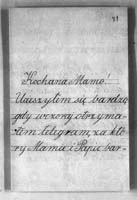 Kochana Mamo!
Ucieszyłem się bardzo
gdy wczoraj otrzyma-
łem telegram, za któ-
ry Mamie i Papie bar-